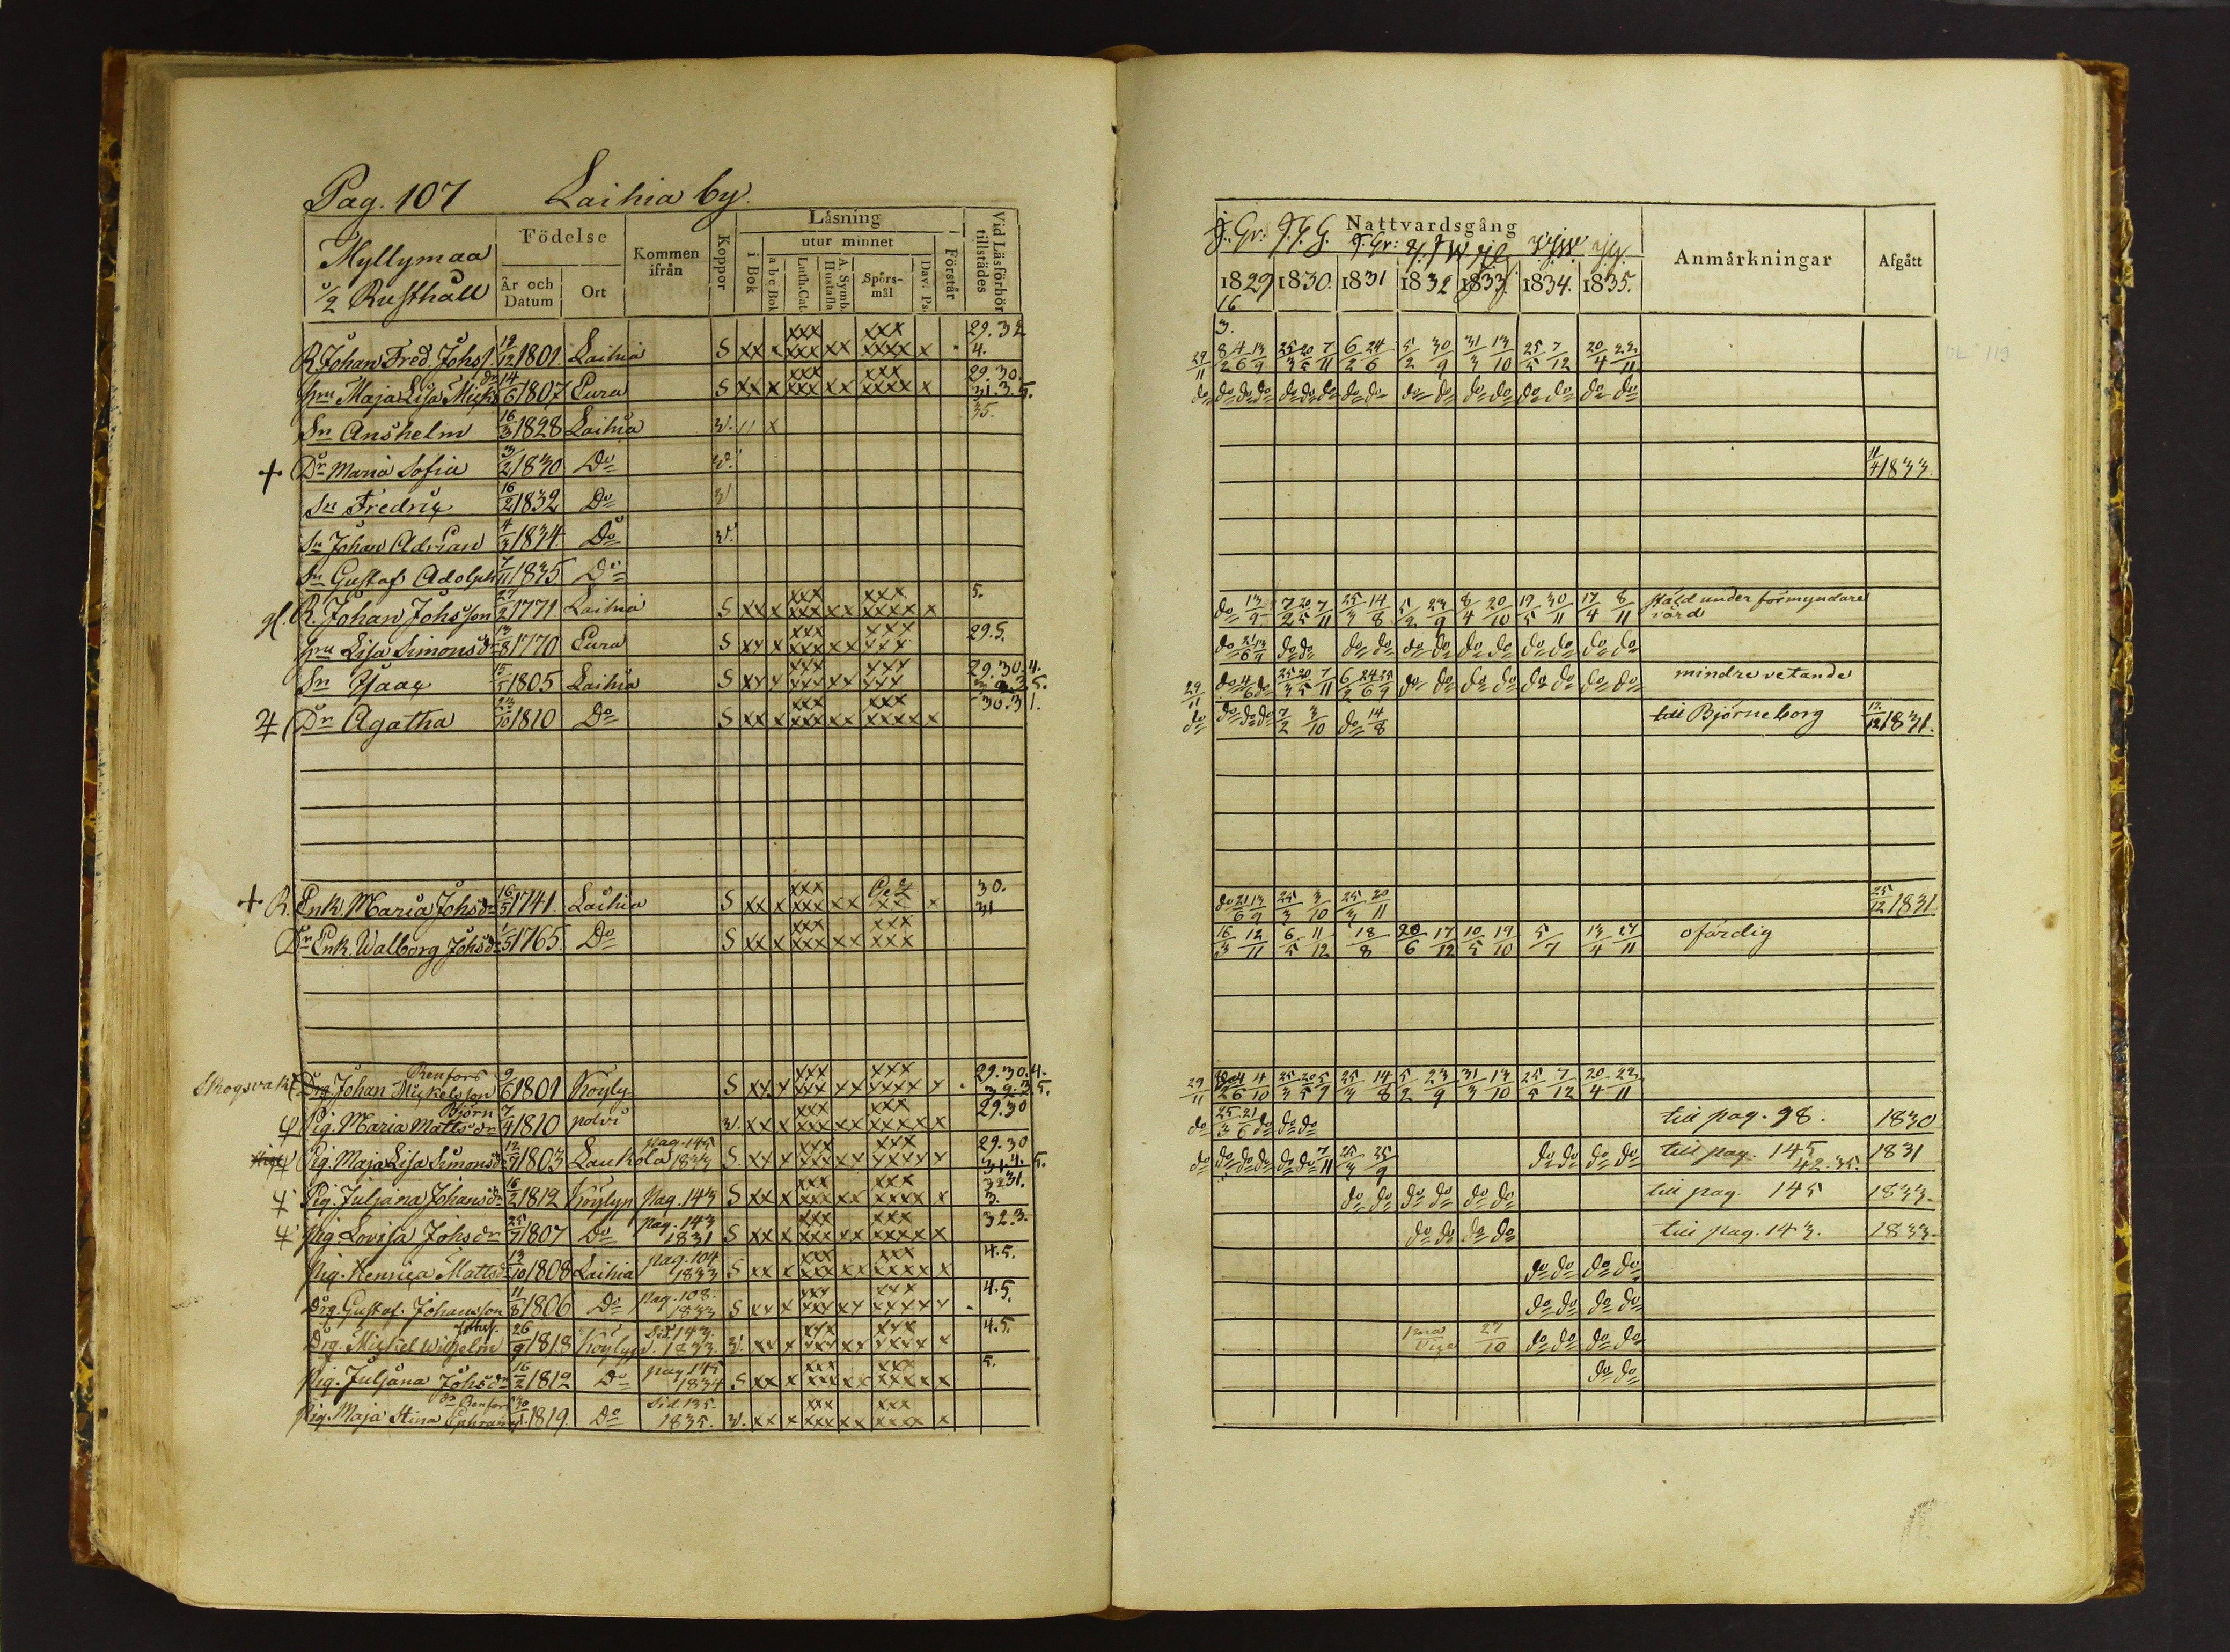 Pag. 107 Laihia by.
Myllymaa
1/2 Rusthåll
Födelse
År och Datum
Ort
Kommen ifrån
Koppor
Låsning
i Bok
utur minnet
a b c Bok
Luth. Cat.
A. Symb. Hustafla
Spörs-mål
Dav. Ps.
Förstår
Vid Läsförhör tillstädes
R. Johan Fred. Johs. 12/12 1801. Laihia S xx x xxx xxx xx xxx xxxx x 29. 32 4.
Maja Lisa Mickdr 14/6 1807 Eura S xxx x xxx xxx xx xxx xxxx x 29. 30. 31. 3. 5.
Sn Anshelm 16/3 1828 Laihia v. 11 x 35.
+ Dr Maria Sofia 3/2 1830 Do v.
Sn Fredric 16/2 1832 Do v
Sn Johan Adrian 4/3 1834. Do v.
Sn Gustaf Adolph 7/11 1835 Do
gl. R. Johan Johsson 27/2 1771. Laihia S xx x xxx xxx xx xxx xxxx x 5.
Lisa Simonsdr 13/8 1770 Eura S xx x xxx xxx xx xxx xxx 29. 5.
Sn Isaac 15/5 1805 Laihia S xx x xxx xxx xx xxx xxx 29. 30. 4.
Dr Agatha 23/10 1810 Do S xx x xxx xxx xx xxx xxxx x 30. 31.
+ R. Enk. Maria Johsdr 16/5 1741. Laihia S xx x xxx xxx xx xx x 30. 31
Dr Enk. Walborg Johsdr 1/5 1765. Do S xx x xxx xxx xx xxx xxx
Skogsvakt. Drg. Johan Mickelsson Renfors 9/6 1801 Köyly- S xx x xxx xxx xx xxx xxxx x 29. 30. 4.
Pig. Maria Mattsdr Björn 7/4 1810 polvi v. xx x xxx xxx xx xxx xxxx x 29. 30
Pig. Maja Lisa Simonsdr 12/7 1803 Laukola pag. 145 1833 S. xx x xxx xxx xx xxx xxxx x 29. 30 31. 4. 5.
Pig. Juljana Johansdr 16/2 1812 Köylyp pag. 143 S xx x xxx xxx xx xxx xxxx x 32 31. 3.
Pig Lovisa Johsdr 25/7 1807 Do pag. 143 1831 S xx x xxx xxx xx xxx xxxx x 32. 3.
Pig. Henrica Mattsdr 13/10 1808 Laihia pag. 104 1833 S xx x xxx xxx xx xxx xxxx x 4. 5.
Drg. Gustaf. Johansson 11/8 1806 Do pag. 108. 1833 S xx x xxx xxx xx xxx xxxx x 4. 5.
Drg. Mickel Wilhelm Johss. 26/9 1818 Köylyp. Sid. 143. 1833. v. xx x xxx xxx xx xxx xxxx x 4. 5.
Pig. Juljana Johsdr 16/2 1812 Do pag 145 1834 S xx x xxx xxx xx xxx xxxx x 5.
Pig. Maja Stina Ephraims dr Renfors 1819 Do Sid 135. 1835. v. xx x xxx xxx xx xxx xxxx x
Nattvardsgång
1829 1830. 1831 1832 1833. 1834. 1835.
Anmärkningar
Afgått
16/3.
29/11 8/2 4/6 13/9 25/3 20/5 7/11 6/2 24/6 5/2 30/9 31/3 13/10 25/5 7/12 20/4 23/11
do do do do do do do do do do do do do do do do do
11/4 1833.
do 13/9 7/2 20/5 7/11 25/3 14/8 5/2 23/9 8/4 20/10 19/5 30/11 17/4 8/11 stäld under förmyndare
vård
do 21/6 13/9 do do do do do do do do do do do do
29/11 do 4/6 do 25/3 20/5 7/11 6/2 24/6 25/9 do do do do do do do do mindre vetande
do do do do 7/2 3/10 do 14/8 till Björneborg 12/12 1831.
do 21/6 13/9 25/3 3/10 25/3 20/11 25/12 1831
16/3 12/11 6/5 11/12 18/8 20/6 17/12 10/5 19/10 5/7 13/4 27/11 ofärdig
29/11 4/6 4/10 25/3 20/5 5/9 25/3 14/8 5/2 23/9 31/3 13/10 25/5 7/12 20/4 22/11
do 25/3 21/6 do do do till pag. 98. 1830
do do do do do do 7/11 25/3 25/9 do do do do till pag. 145 42. 35. 1831
do do do do do do till pag. 145 1833.
do do do do till pag. 143. 1833.
do do do do
do do do do
27/10 do do do do
do do